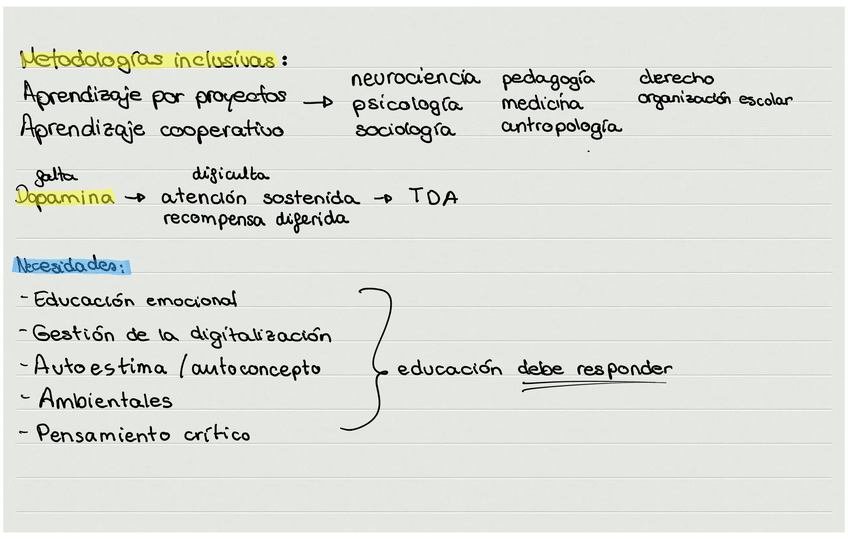 Metodologías inclusivas:
Aprendizaje por proyectos → neurociencia pedagogía derecho
psicología medicina organización escolar
Aprendizaje cooperativo sociología antropología
falta dificulta
Dopamina → atención sostenida → TDA
recompensa diferida
Necesidades:
- Educación emocional
- Gestión de la digitalización
- Autoestima / autoconcepto educación debe responder
- Ambientales
- Pensamiento crítico